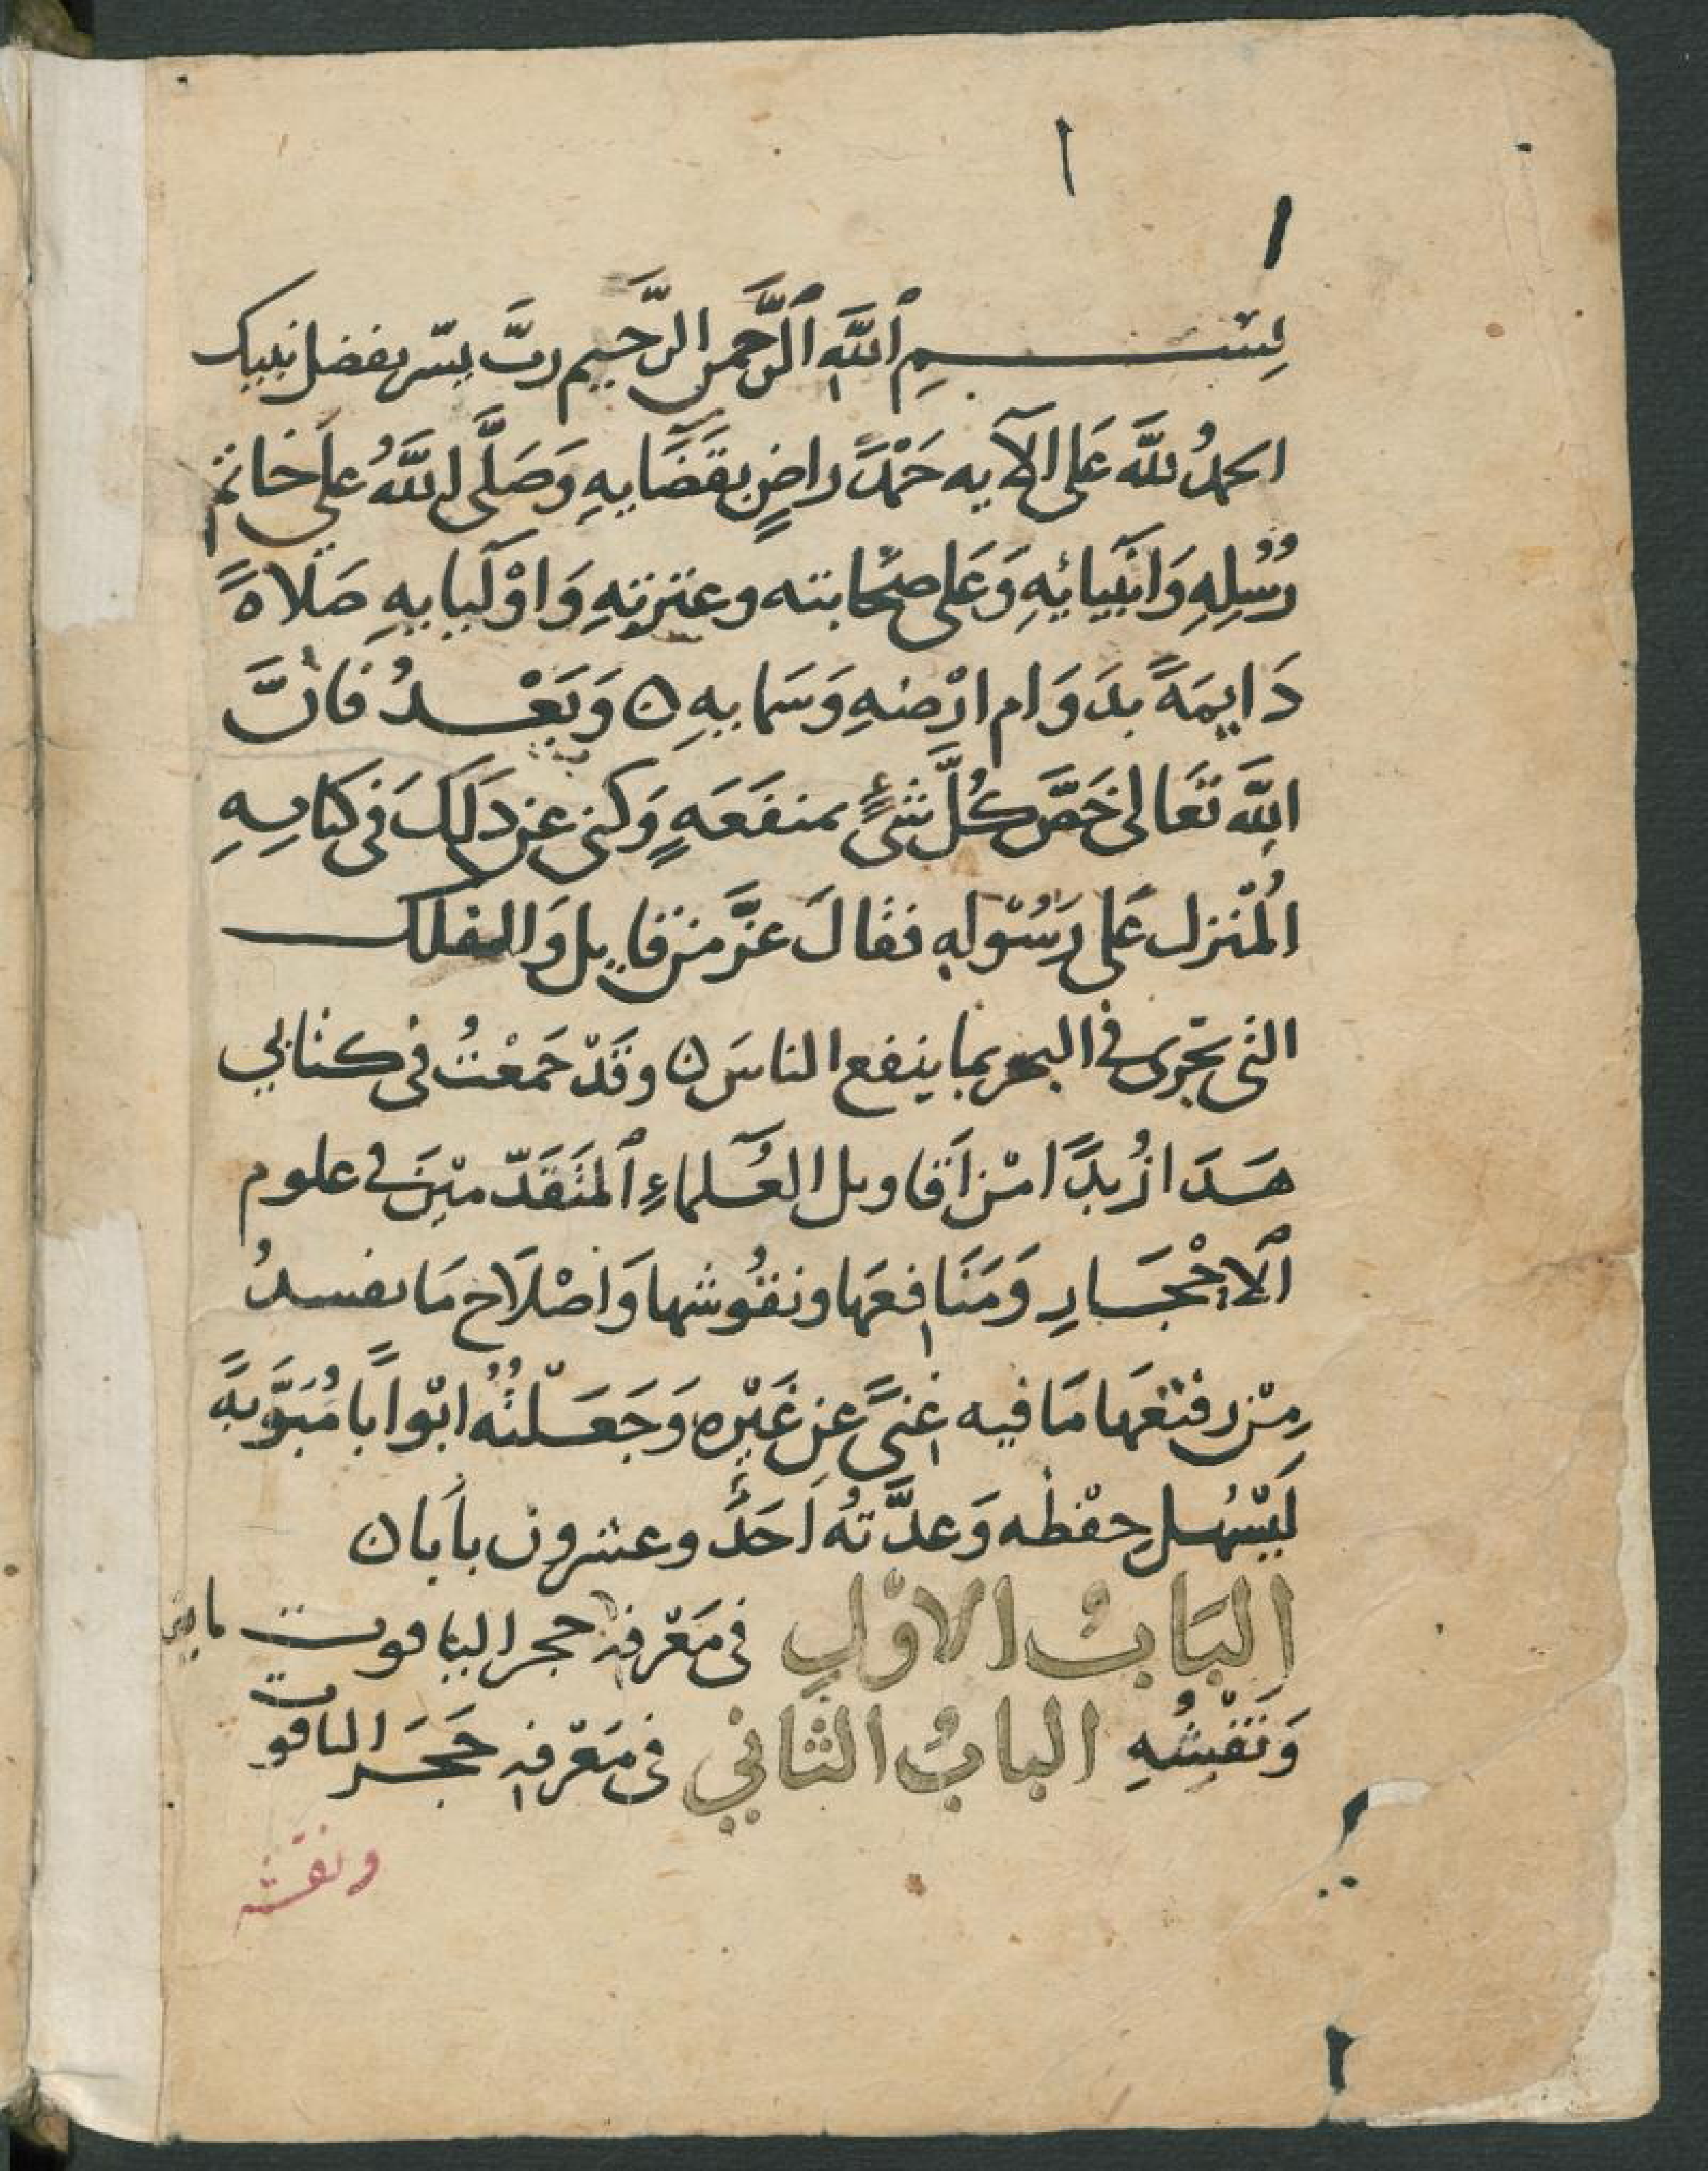 ١
١
بِسْمِ ٱللَّهِ ٱلرَّحْمَنِ الرَّحِيم رَبِّ يسّر بفضل نبيك
الحمدُ للَّه عَلى الآيه حَمْدَ راضٍ بِقَضَايِهِ وَصَلَّى اللَّهُ على خاتم
رُسُلِهِ وَانبيائِهِ وَعَلى صحابته وعترتِهِ وَاوْليايهِ صَلَاةً
دَايمَةً بدَوَام ارْضهِ وَسَمايهِ ۞ وَبَعْدُ فَانَّ
اللَّه تَعَالى خَصَّ كُلَّ شىءٍ بمنفَعَةٍ وَكنى عن ذَلِكَ فى كتابِهِ
المُنْزل عَلى رَسُوْلهِ فقالَ عزَّ من قايل وَالفلك
التى تجرى فى البحر بما ينفع الناسَ ۞ وقَدْ جَمعْتُ فى كتابي
هَذَا زُبدًا منْ اَقاويل العُلماءِ ٱلمتَقَدّميْنَ فى علوم
ٱلاحْجَارِ وَمَنَافِعَها ونقُوشها وَاصْلَاح مَا يفسدُ
مِنْ رفتعَها مَا فيه غِنىً عن غَيْرِه وَجَعَلْتُهُ ابْوابًا مُبَوَّبةً
لَيَسْهُل حِفْظه وَعدَّتهُ اَحَدٌ وعشرون بابًا ۞
البَابُ الاوّل فى مَعْرفةِ حجر الياقوت
وَنَقْشِهِ البابُ الثَّاني فى مَعْرفةِ حَجَر الياقوت
ونقشه